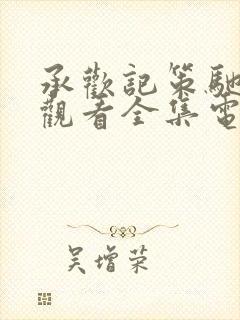 承歡記策馳
觀看全集電
吴增荣